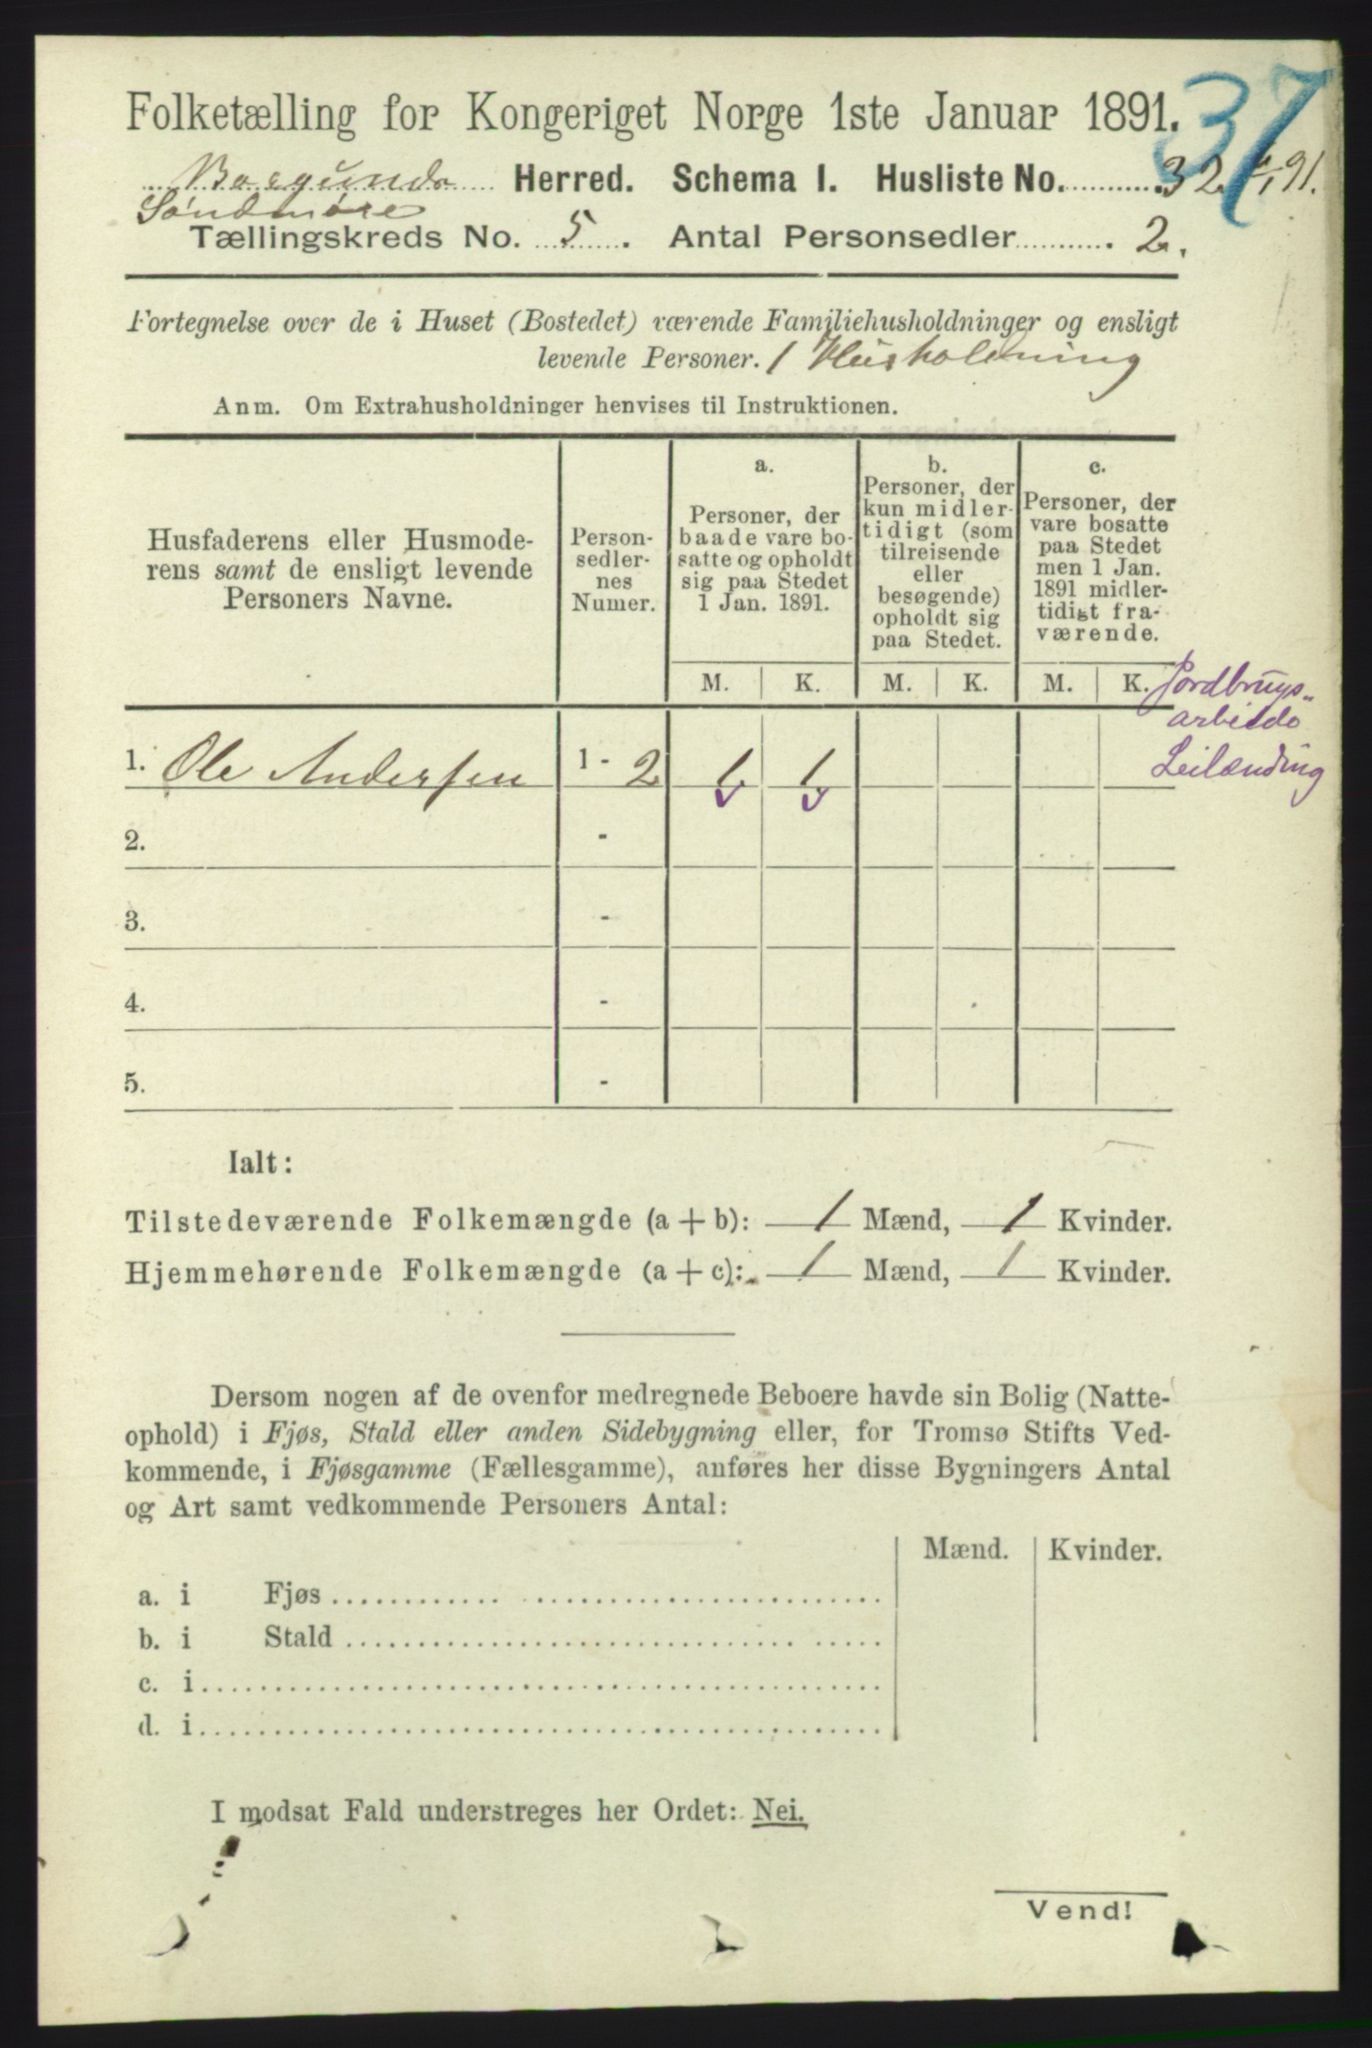 37
Folketælling for Kongeriget Norge 1ste Januar 1891.
Borgunds Herred. Schema I. Husliste No. 32
Søndmøre
Tællingskreds No. 5. Antal Personsedler 2.
Fortegnelse over de i Huset (Bostedet) værende Familiehusholdninger og ensligt
levende Personer. 1 Husholdning
Anm. Om Extrahusholdninger henvises til Instruktionen.
Husfaderens eller Husmode-
rens samt de ensligt levende
Personers Navne.
Person-
sedler-
nes
Numer.
a.
Personer, der
baade vare bo-
satte og opholdt
sig paa Stedet
1 Jan. 1891.
b.
Personer, der
kun midler-
tidigt (som
tilreisende
eller
besøgende)
opholdt sig
paa Stedet.
c.
Personer, der
vare bosatte
paa Stedet
men 1 Jan.
1891 midler-
tidigt fra-
værende.
M. K. M. K. M. K.
Jordbrugs-
arbeide
Leilænding
1. Ole Andersen 1 - 2 1 1
2. -
3. -
4. -
5. -
Ialt:
Tilstedeværende Folkemængde (a + b): 1 Mænd, 1 Kvinder.
Hjemmehørende Folkemængde (a + c): 1 Mænd, 1 Kvinder.
Dersom nogen af de ovenfor medregnede Beboere havde sin Bolig (Natte-
ophold) i Fjøs, Stald eller anden Sidebygning eller, for Tromsø Stifts Ved-
kommende, i Fjøsgamme (Fællesgamme), anføres her disse Bygningers Antal
og Art samt vedkommende Personers Antal:
Mænd. Kvinder.
a. i Fjøs
b. i Stald
c. i
d. i
I modsat Fald understreges her Ordet: Nei.
Vend!